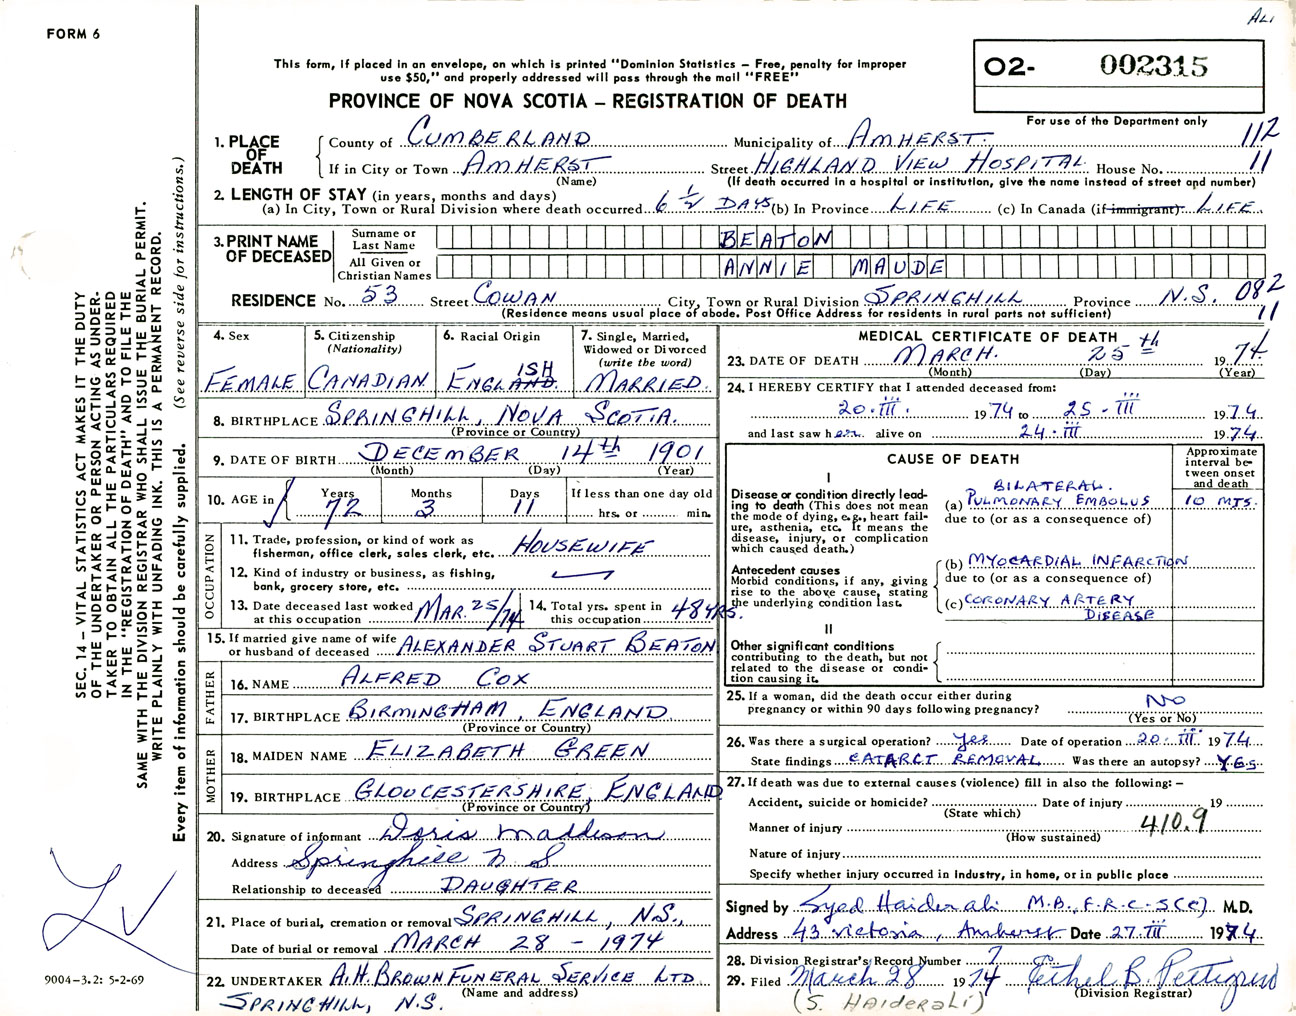 ALI
FORM 6
This form, if placed in an envelope, on which is printed "Dominion Statistics – Free, penalty for improper
use $50," and properly addressed will pass through the mail "FREE"
PROVINCE OF NOVA SCOTIA – REGISTRATION OF DEATH
O2- 002315
For use of the Department only
SEC. 14 – VITAL STATISTICS ACT MAKES IT THE DUTY
OF THE UNDERTAKER OR PERSON ACTING AS UNDER-
TAKER TO OBTAIN ALL THE PARTICULARS REQUIRED
IN THE "REGISTRATION OF DEATH" AND TO FILE THE
SAME WITH THE DIVISION REGISTRAR WHO SHALL ISSUE THE BURIAL PERMIT.
WRITE PLAINLY WITH UNFADING INK. THIS IS A PERMANENT RECORD.
Every item of information should be carefully supplied. (See reverse side for instructions.)
1. PLACE OF DEATH
County of CUMBERLAND Municipality of AMHERST 112
If in City or Town AMHERST Street HIGHLAND VIEW HOSPITAL House No. 11
(Name) (If death occurred in a hospital or institution, give the name instead of street and number)
2. LENGTH OF STAY (in years, months and days)
(a) In City, Town or Rural Division where death occurred 6 1/2 DAYS (b) In Province LIFE (c) In Canada (if immigrant) LIFE
3. PRINT NAME OF DECEASED
Surname or Last Name BEATON
All Given or Christian Names ANNIE MAUDE
RESIDENCE No. 53 Street COWAN City, Town or Rural Division SPRINGHILL Province N.S. 082
(Residence means usual place of abode. Post Office Address for residents in rural parts not sufficient) 11
4. Sex FEMALE
5. Citizenship (Nationality) CANADIAN
6. Racial Origin ENGLAND ISH
7. Single, Married, Widowed or Divorced (write the word) MARRIED
8. BIRTHPLACE SPRINGHILL, NOVA SCOTIA.
(Province or Country)
9. DATE OF BIRTH DECEMBER 14th 1901
(Month) (Day) (Year)
10. AGE in Years 72 Months 3 Days 11 If less than one day old hrs. or min.
OCCUPATION
11. Trade, profession, or kind of work as
fisherman, office clerk, sales clerk, etc. HOUSEWIFE
12. Kind of industry or business, as fishing,
bank, grocery store, etc.
13. Date deceased last worked at this occupation MAR. 25/74 14. Total yrs. spent in this occupation 48 YRS.
15. If married give name of wife
or husband of deceased ALEXANDER STUART BEATON
FATHER
16. NAME ALFRED COX
17. BIRTHPLACE BIRMINGHAM, ENGLAND
(Province or Country)
MOTHER
18. MAIDEN NAME ELIZABETH GREEN
19. BIRTHPLACE GLOUCESTERSHIRE, ENGLAND
(Province or Country)
20. Signature of informant Doris Maddison
Address Springhill N S
Relationship to deceased DAUGHTER
21. Place of burial, cremation or removal SPRINGHILL, N.S.,
Date of burial or removal MARCH 28 – 1974
22. UNDERTAKER A.H. BROWN FUNERAL SERVICE LTD
(Name and address)
SPRINGHILL, N.S.
9004–3.2: 5-2-69
MEDICAL CERTIFICATE OF DEATH
23. DATE OF DEATH MARCH. 25th 1974
(Month) (Day) (Year)
24. I HEREBY CERTIFY that I attended deceased from:
20.III. 1974 to 25-III 1974
and last saw her alive on 24.III 1974
CAUSE OF DEATH
Approximate interval between onset and death
I
Disease or condition directly lead-
ing to death (This does not mean
the mode of dying, e.g., heart fail-
ure, asthenia, etc. It means the
disease, injury, or complication
which caused death.)
BILATERAL.
(a) PULMONARY EMBOLUS 10 MTS.
due to (or as a consequence of)
Antecedent causes
Morbid conditions, if any, giving
rise to the above cause, stating
the underlying condition last.
(b) MYOCARDIAL INFARCTION
due to (or as a consequence of)
(c) CORONARY ARTERY
DISEASE
II
Other significant conditions
contributing to the death, but not
related to the disease or condi-
tion causing it.
25. If a woman, did the death occur either during
pregnancy or within 90 days following pregnancy? NO
(Yes or No)
26. Was there a surgical operation? Yes Date of operation 20.III. 1974
State findings CATARCT REMOVAL Was there an autopsy? YES
27. If death was due to external causes (violence) fill in also the following: –
Accident, suicide or homicide? Date of injury 19
(State which)
Manner of injury 410.9
(How sustained)
Nature of injury
Specify whether injury occurred in industry, in home, or in public place
Signed by Syed Haiderali M.B., F.R.C.S(C) M.D.
Address 43 Victoria, Amherst Date 27.III 1974
28. Division Registrar's Record Number 7
29. Filed March 28 1974 Ethel B. Pettigrew
(Division Registrar)
(S. HAIDERALI)